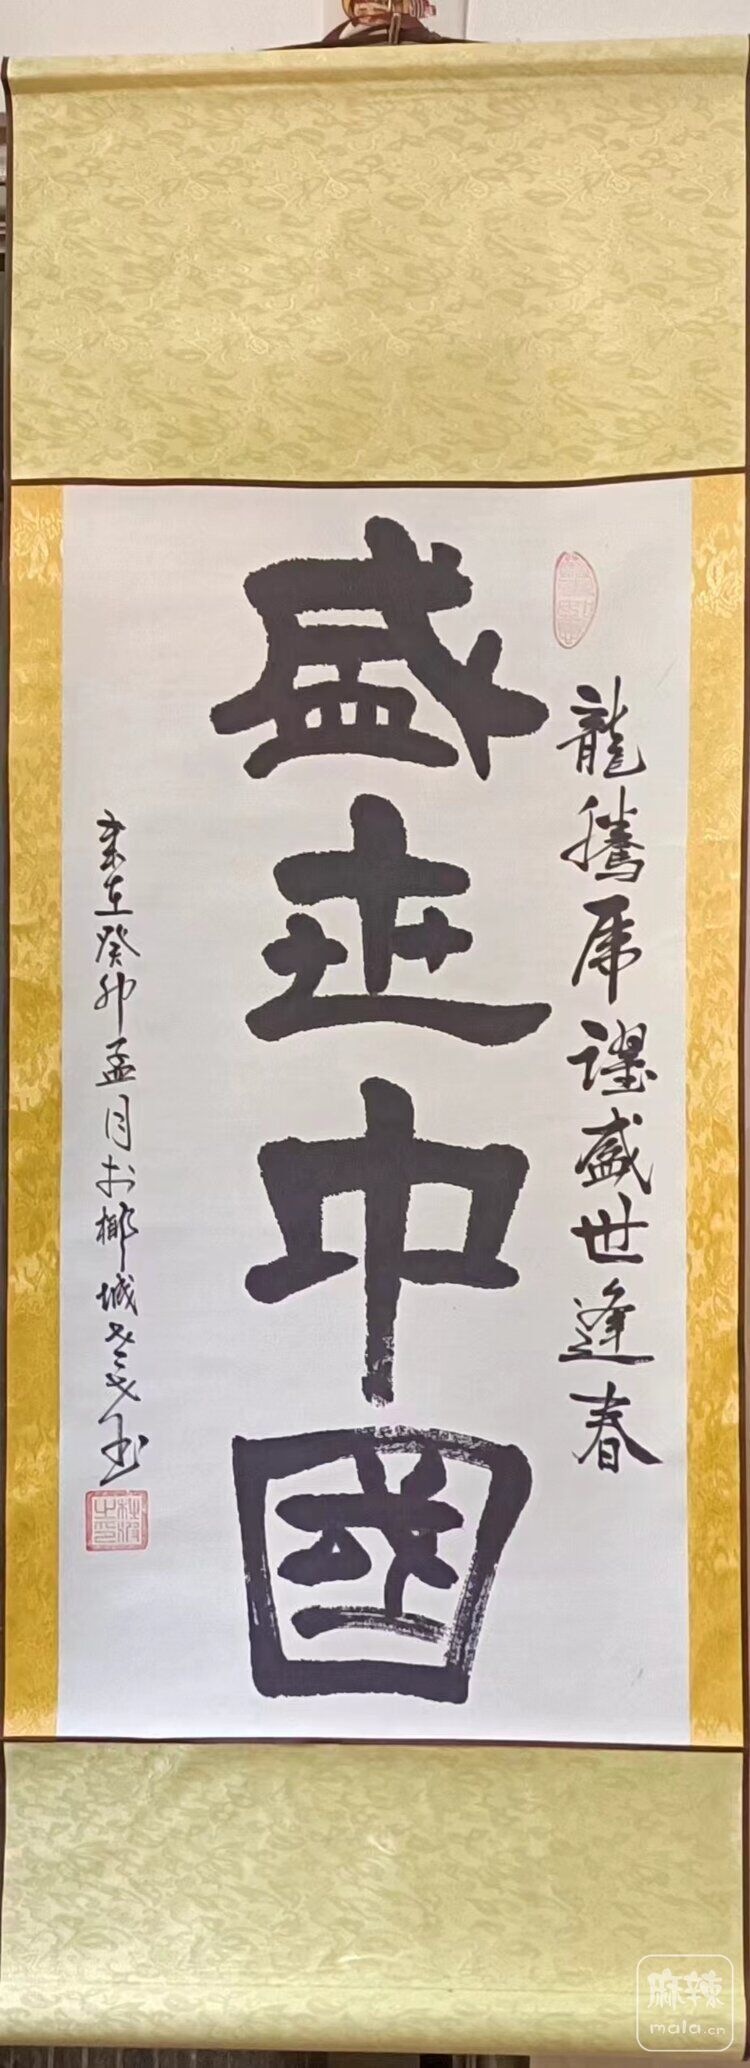 龍騰虎躍盛世逢春
盛世中國
癸卯孟月於椰城
麻辣
mala.cn